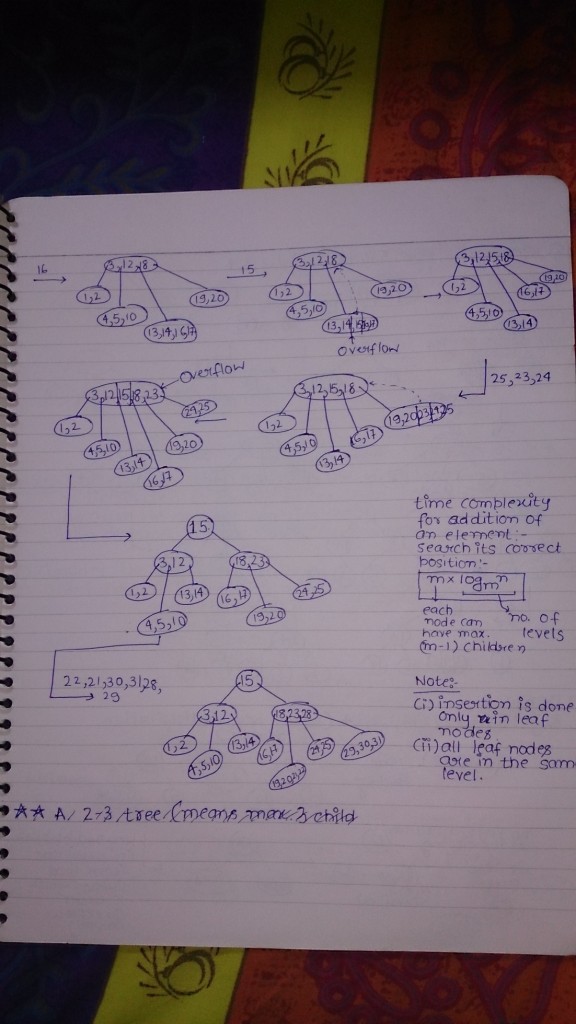 16
3,12,18
1,2
4,5,10
13,14,16,17
19,20
15
3,12,18
1,2
4,5,10
13,14,15,16,17
19,20
overflow
3,12,15,18
1,2
4,5,10
13,14
16,17
19,20
25,23,24
3,12,15,18
1,2
4,5,10
13,14
16,17
19,20,23,24,25
overflow
3,12,15,18,23
1,2
4,5,10
13,14
16,17
19,20
24,25
15
3,12
18,23
1,2
4,5,10
13,14
16,17
19,20
24,25
time complexity
for addition of
an element:-
search its correct
position:-
m × log_m n
each
node can
have max.
(m-1) children
no. of
levels
22,21,30,31,28,
29
15
3,12
18,23,28
1,2
4,5,10
13,14
16,17
19,20,21,22
24,25
29,30,31
Note:-
(i) insertion is done
only in leaf
nodes
(ii) all leaf nodes
are in the sam
level.
☆☆ A 2-3 tree (means max. 3 child